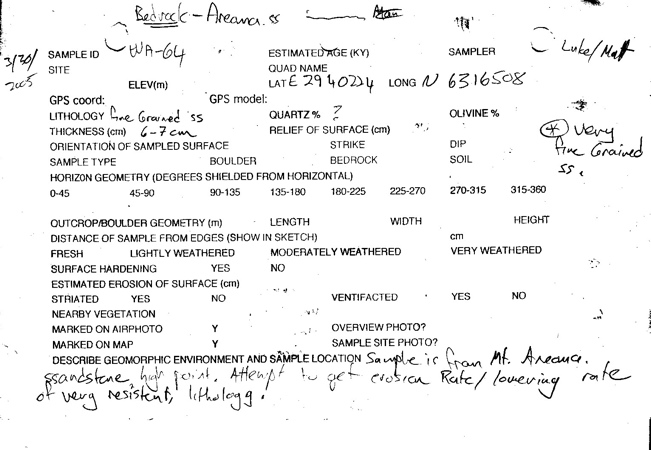 Bedrock - Areana ss
3/30/2005
SAMPLE ID WA-64 ESTIMATED AGE (KY) SAMPLER Luke/Matt
SITE QUAD NAME
ELEV(m) LAT E 2940224 LONG N 6316508
GPS coord: GPS model:
LITHOLOGY fine Grained ss QUARTZ % ? OLIVINE %
THICKNESS (cm) 6-7cm RELIEF OF SURFACE (cm)
* very fine Grained ss.
ORIENTATION OF SAMPLED SURFACE STRIKE DIP
SAMPLE TYPE BOULDER BEDROCK SOIL
HORIZON GEOMETRY (DEGREES SHIELDED FROM HORIZONTAL)
0-45 45-90 90-135 135-180 180-225 225-270 270-315 315-360
OUTCROP/BOULDER GEOMETRY (m) LENGTH WIDTH HEIGHT
DISTANCE OF SAMPLE FROM EDGES (SHOW IN SKETCH) cm
FRESH LIGHTLY WEATHERED MODERATELY WEATHERED VERY WEATHERED
SURFACE HARDENING YES NO
ESTIMATED EROSION OF SURFACE (cm)
STRIATED YES NO VENTIFACTED YES NO
NEARBY VEGETATION
MARKED ON AIRPHOTO Y OVERVIEW PHOTO?
MARKED ON MAP Y SAMPLE SITE PHOTO?
DESCRIBE GEOMORPHIC ENVIRONMENT AND SAMPLE LOCATION Sample is from Mt. Areana.
ssandstone high point. Attempt to get erosion Rate/lowering rate
of very resistent, lithology.